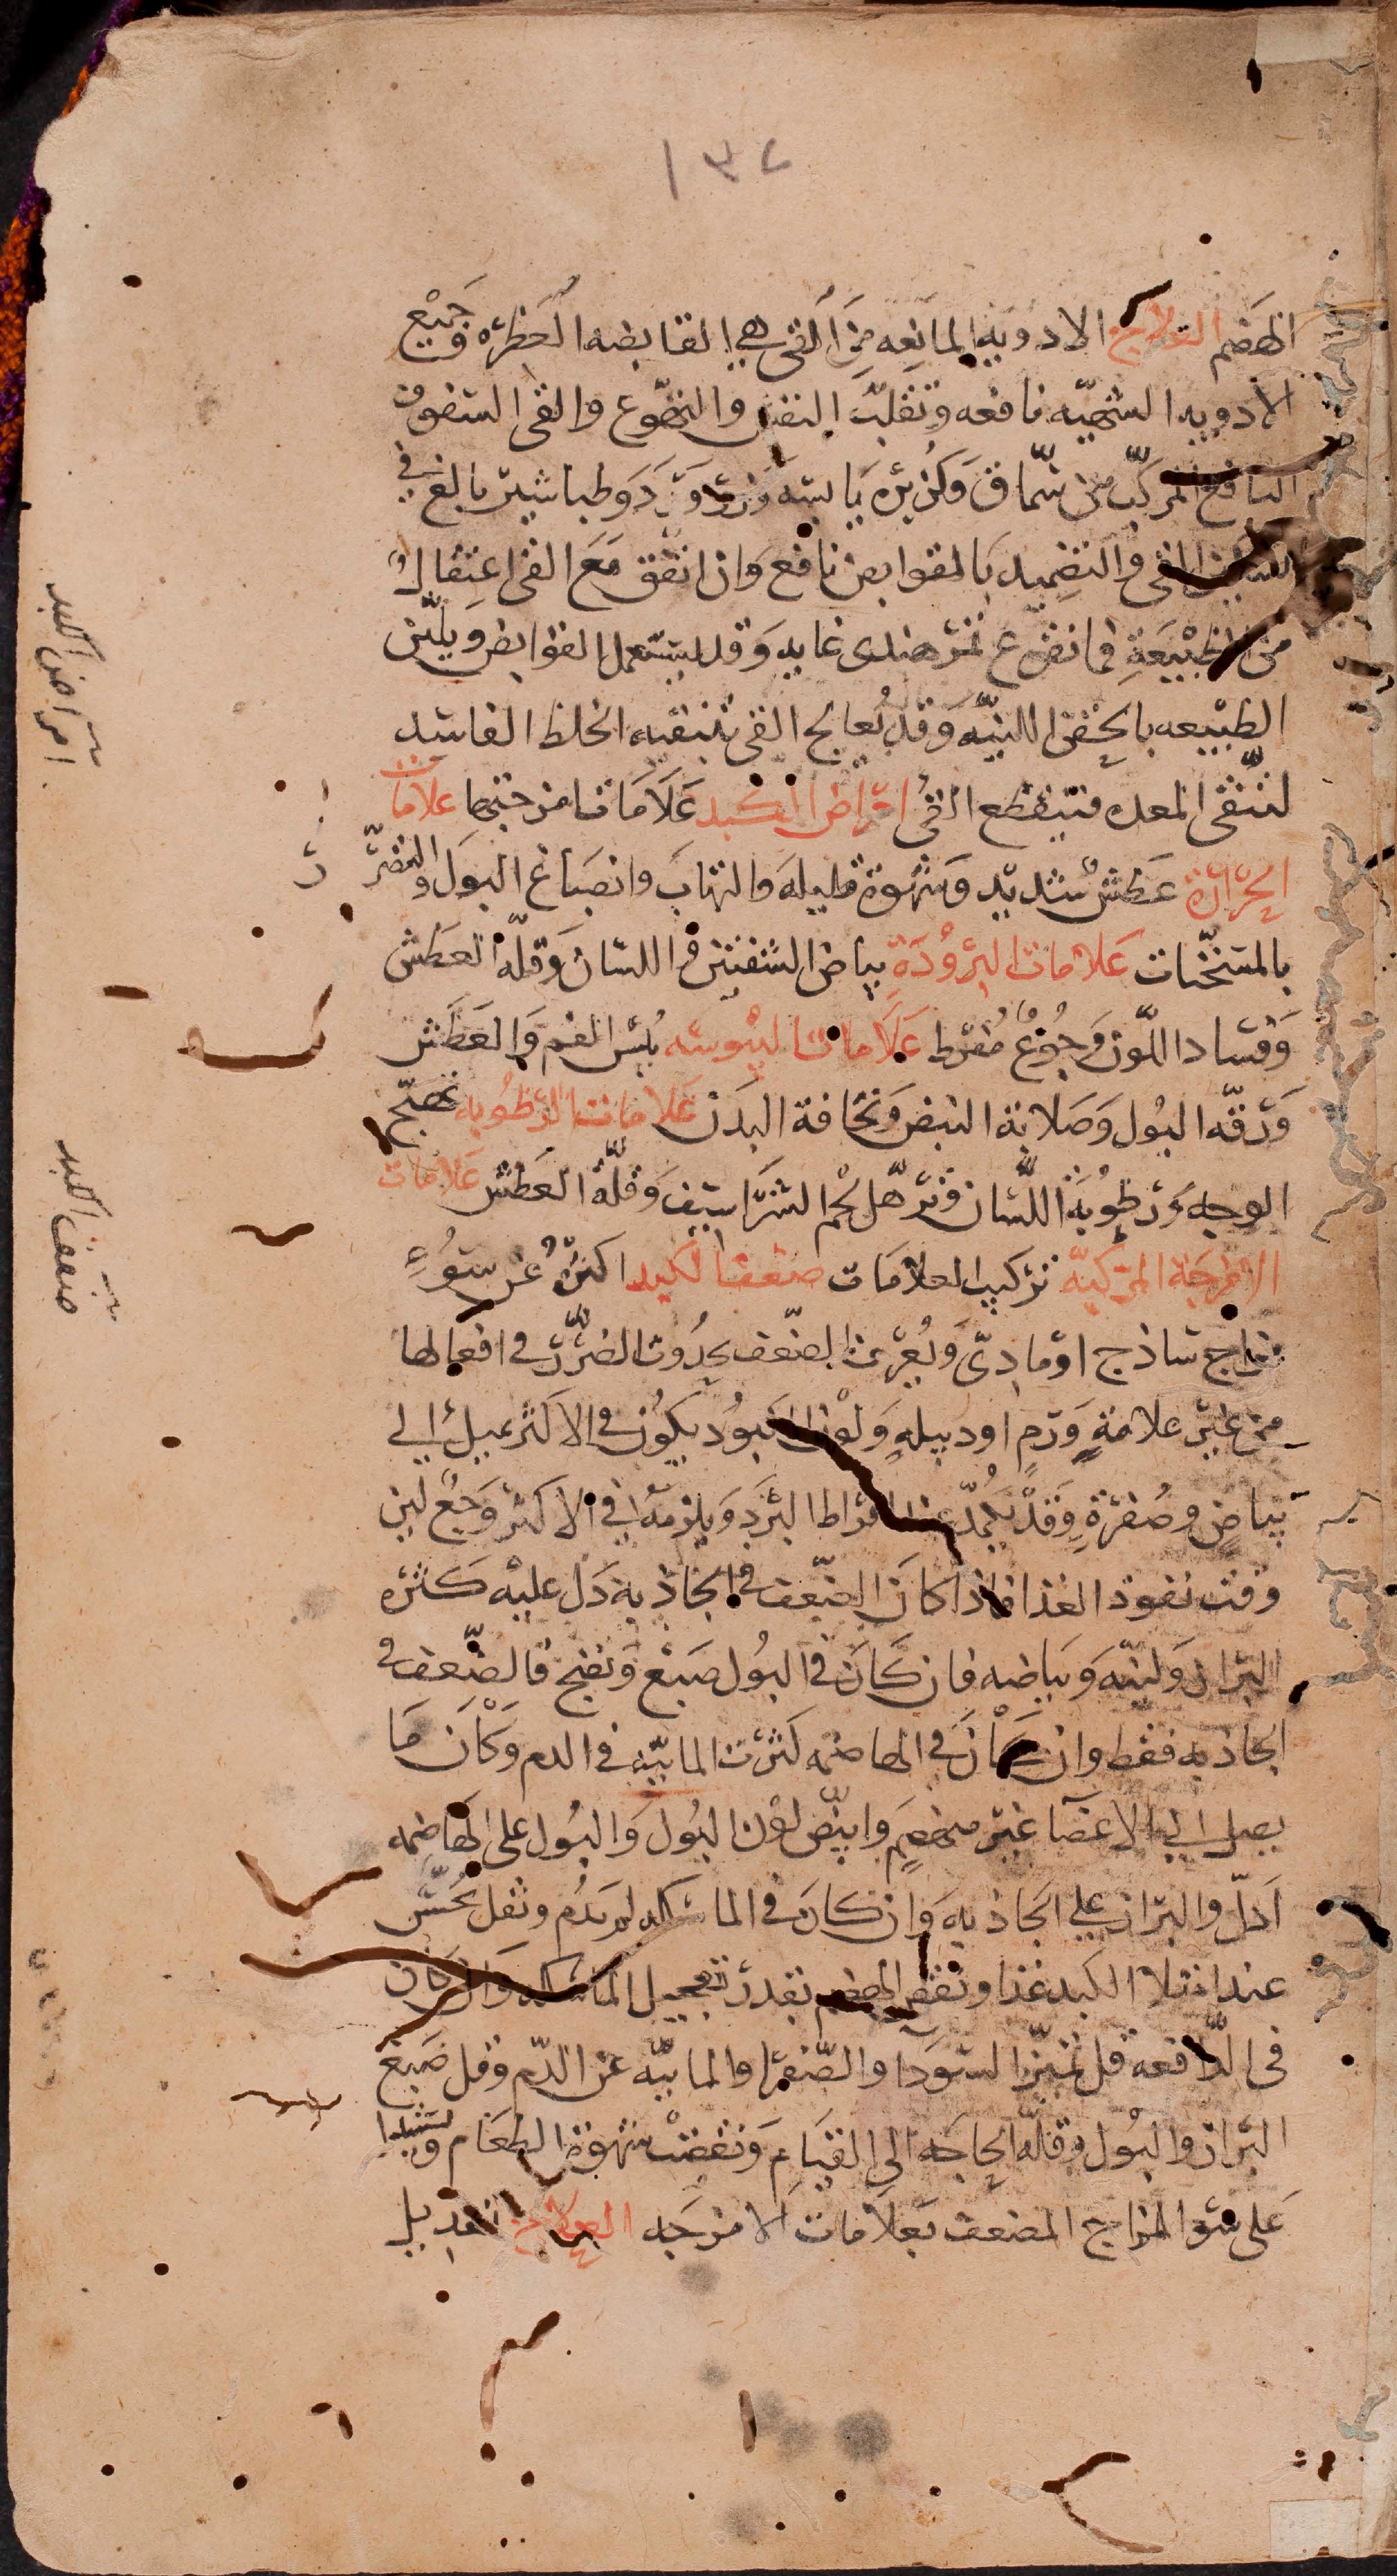 ١٣٧
الهضم العلاج الادويه المانعه من القى هى القابضه العطره وجميع
الادويه الشهيّه نافعه وتقلب النفس والتهوّع والقى السفوف
النافع المركّب من سمّاق وكزبره يابسه وورد وطباشير بالغ فى
القى والتضميد بالقوابض نافع وان اتفق مع القى اعتقال
من الطبيعة فماء نقوع تمر هندى غايه وقد يستعمل القوابض ويليّن
الطبيعه بالحقن الليّنه وقد يُعالج القى بتنقيه الخلط الفاسد
لتنقى المعده فينقطع القى امراض الكبد علامات امزجتها علامات
الحرارة عطش شديد وشهوة قليله والتهاب وانصباغ البول والتضرّر
بالمسخّنات علامات البرودة بياض الشفتين واللسان وقلّة العطش
وفساد اللون وجوع مُفرط علامات اليبوسه يُبس الفم والعطش
ورقّه البول وصلابة النبض ونحافة البدن علامات الرطوبه تهيّج
الوجه ورطوبة اللسان وترهّل لحم الشراسيف وقلّة العطش علامات
الامزجة المركبّه تركيب العلامات ضعف الكبد اكثره عن سوء
مزاج ساذج او مادىّ ويُعرف الضعف بحدوث الضرر فى افعالها
من غير علامة ورم او دبيله ولون المكبود يكون فى الاكثر يميل الى
بياض وصفرة وقد يكمدّ عند افراط البرد ويلزمه فى الاكثر وجع لين
وقت نفوذ الغذا فاذا كان الضعف فى الجاذبة دل عليه كثره
البراز ولينه وبياضه فان كان فى البول صبغ ونضج فالضعف فى
الجاذبه فقط وان كان فى الهاضمه كثرت المائيّه فى الدم وكان ما
يصل الى الاعضا غير منهضم وابيضّ لون البول والبول على الهاضمه
ادلّ والبراز على الجاذبه وان كان فى الماسكه لم يدُم ثقل يُحَسّ
عند امتلا الكبد غذا ونقص الهضم بقدر تعجيل الماسكه وان كان
فى الدافعه قل تميّز السودا والصفرا والمائيّه عن الدم وقل صبغ
البراز والبول وقلّه الحاجه الى القيام ونقصت شهوة الطعام ويستدل
على سو المزاج المضعف بعلامات الامزجه العلاج تعديل
امراض الكبد
ضعف الكبد